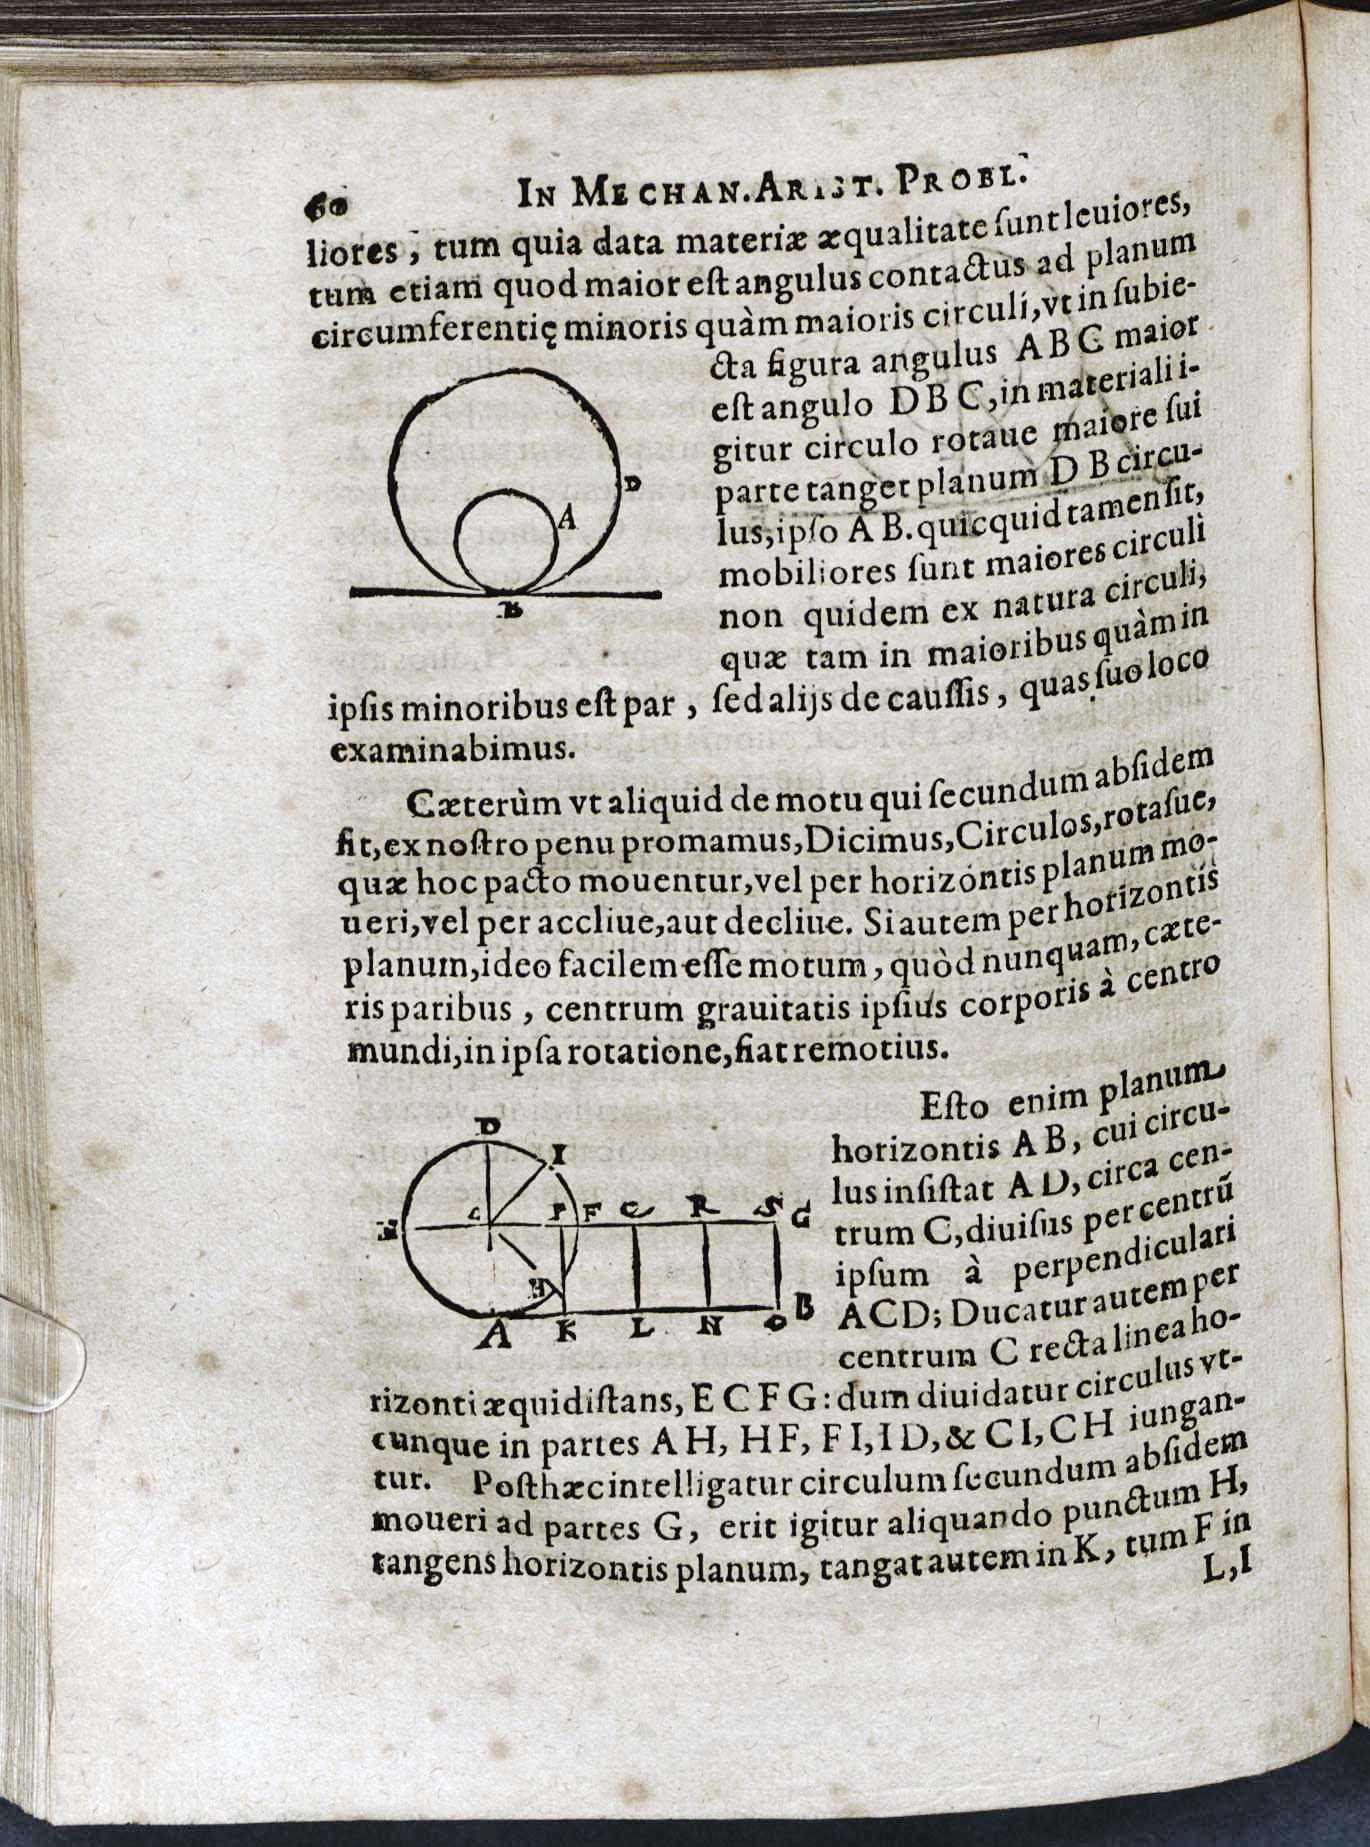 60 IN MECHAN. ARIST. PROBL.
liores, tum quia data materiæ æqualitate ſunt leuiores,
tum etiam quod maior eſt angulus contactus ad planum
circumferentię minoris quàm maioris circuli, vt in ſubie-
cta figura angulus A B C maior
eſt angulo D B C, in materiali i-
gitur circulo rotaue maiore ſui
parte tanget planum D B circu-
lus, ipſo A B. quicquid tamen ſit,
mobiliores ſunt maiores circuli
non quidem ex natura circuli,
quæ tam in maioribus quàm in
D
A
B
ipſis minoribus eſt par, ſed alijs de cauſſis, quas ſuo loco
examinabimus.
Cæterùm vt aliquid de motu qui ſecundum abſidem
fit, ex noſtro penu promamus, Dicimus, Circulos, rotaſue,
quæ hoc pacto mouentur, vel per horizontis planum mo-
ueri, vel per accliue, aut decliue. Si autem per horizontis
planum, ideo facilem eſſe motum, quòd nunquam, cæte-
ris paribus, centrum grauitatis ipſius corporis à centro
mundi, in ipſa rotatione, fiat remotius.
Eſto enim planum
horizontis A B, cui circu-
lus inſiſtat A D, circa cen-
trum C, diuiſus per centrũ
ipſum à perpendiculari
ACD; Ducatur autem per
centrum C recta linea ho-
D
I
C P F Q R S G
H
B
A K L N O
rizonti æquidiſtans, E C F G: dum diuidatur circulus vt-
cunque in partes A H, H F, F I, I D, & C I, C H iungan-
tur. Poſthæc intelligatur circulum ſecundum abſidem
moueri ad partes G, erit igitur aliquando punctum H,
tangens horizontis planum, tangat autem in K, tum F in
L, I